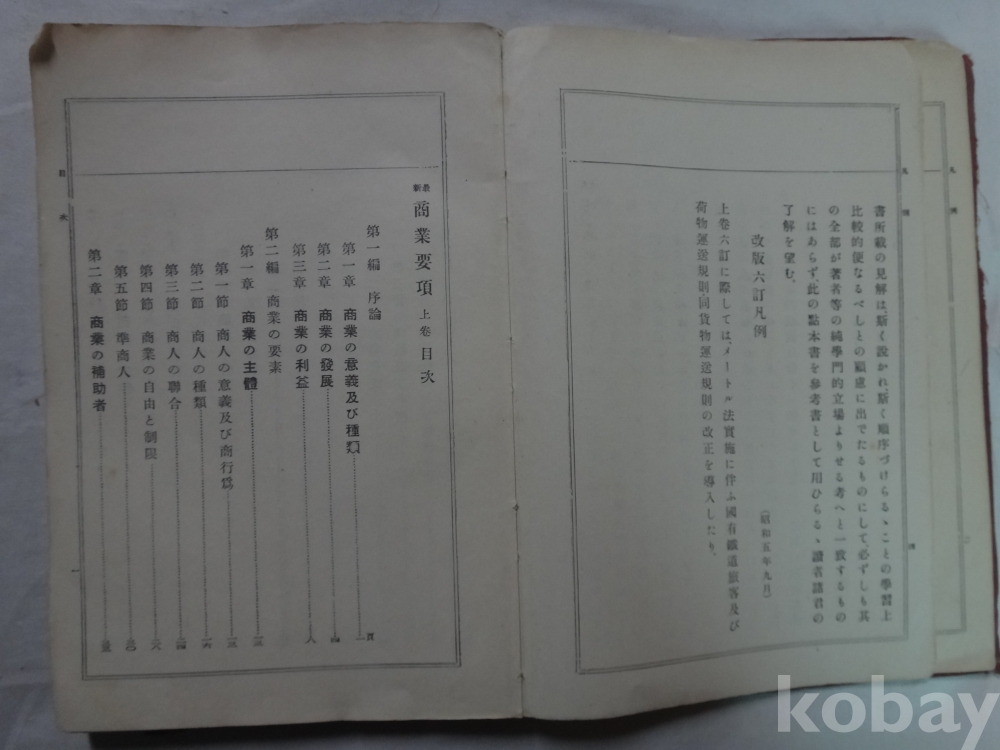 凡例
四
書所載の見解は、斯く說かれ、斯く順序づけらるゝことの學習上
比較的便なるべしとの顧慮に出でたるものにして、必ずしも其
の全部が著者等の純學門的立場よりせる考へと一致するもの
にはあらず、此の點本書を參考書として用ひらるゝ讀者諸君の
了解を望む。
(昭和五年九月)
改版六訂凡例
上卷六訂に際しては、メートル法實施に伴ふ國有鐵道旅客及び
荷物運送規則同貨物運送規則の改正を導入したり。
最新 商業要項 上卷 目次
第一編 序論
頁
第一章 商業の意義及び種類 一
第二章 商業の發展
第三章 商業の利益 八
第二編 商業の要素
第一章 商業の主體
第一節 商人の意義及び商行爲
第二節 商人の種類
第三節 商人の聯合
第四節 商業の自由と制限
第五節 準商人
第二章 商業の補助者
目次
一
kobay